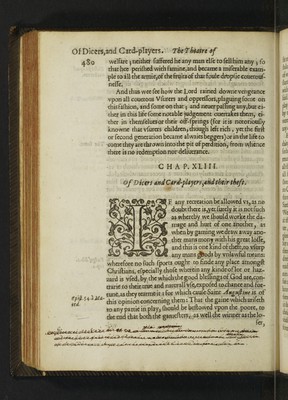 Of Dicers, and Card-players. The Theatre of
480
welfare; neither suffered he any man else to feed him any; so
that hee perished with famine, and became a miserable exam-
ple to all the armie, of the fruits of that foule
nesse.
And thus wee see how the Lord rained downe vengeance
upon all covetous Usurers and oppressors, plaguing some on
this fashion, and some on that; and never passing any, but ei-
ther in this life some notable judgement overtaketh them, ei-
ther in themselves or their off-springs (for it is notoriously
knowne that usurers children, though left rich, yet the first
or second generation became alwaies beggers) or in the life to
come they are throwne into the pit of perdition, from whence
there is no redemption nor deliverance.
CHAP. XLIII.
Of Dicers and Card-players, and their theft.
IF any recreation be allowed us, as no
doubt there is, yet surely it is not such
as whereby we should worke the da-
mage and hurt of one another, as
when by gaming we draw away ano-
ther mans mony with his great losse,
and this is one kind of theft, to usurp
any mans goods by unlawful means:
wherefore no such sports ought to finde any place amongst
Christians, especially those wherein any kind of lot or haz-
ard is used, by the which the good blessings of God are, con-
trarie to their true and naturall use, exposed to chance and for-
tune, as they terme it: for which cause Saint Augustine is of
this opinion concerning them: That the gaine which ariseth
to any partie in play, should be bestowed upon the poore, to
the end that both the gamesters, as well the winner as the lo-
ser,
Epist. 54.